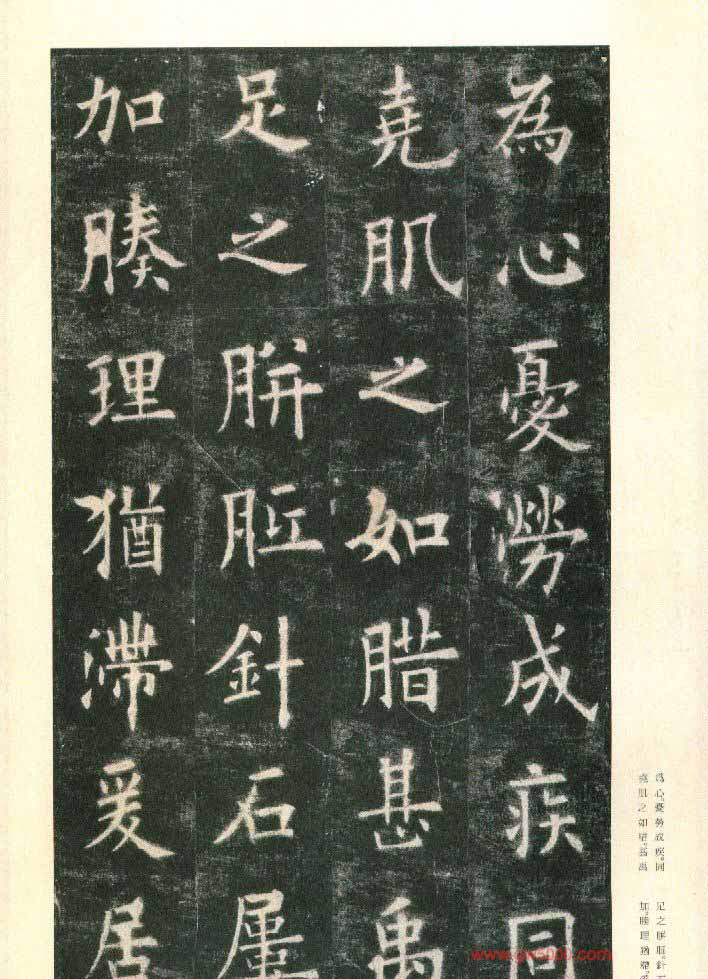 為心憂勞成疾同
堯肌之如腊甚禹
足之胼胝針石屢
加腠理猶滯爰居
爲心。憂勞成疾。同
堯肌之如腊。甚禹
足之胼胝。針
加。腠理猶滯。